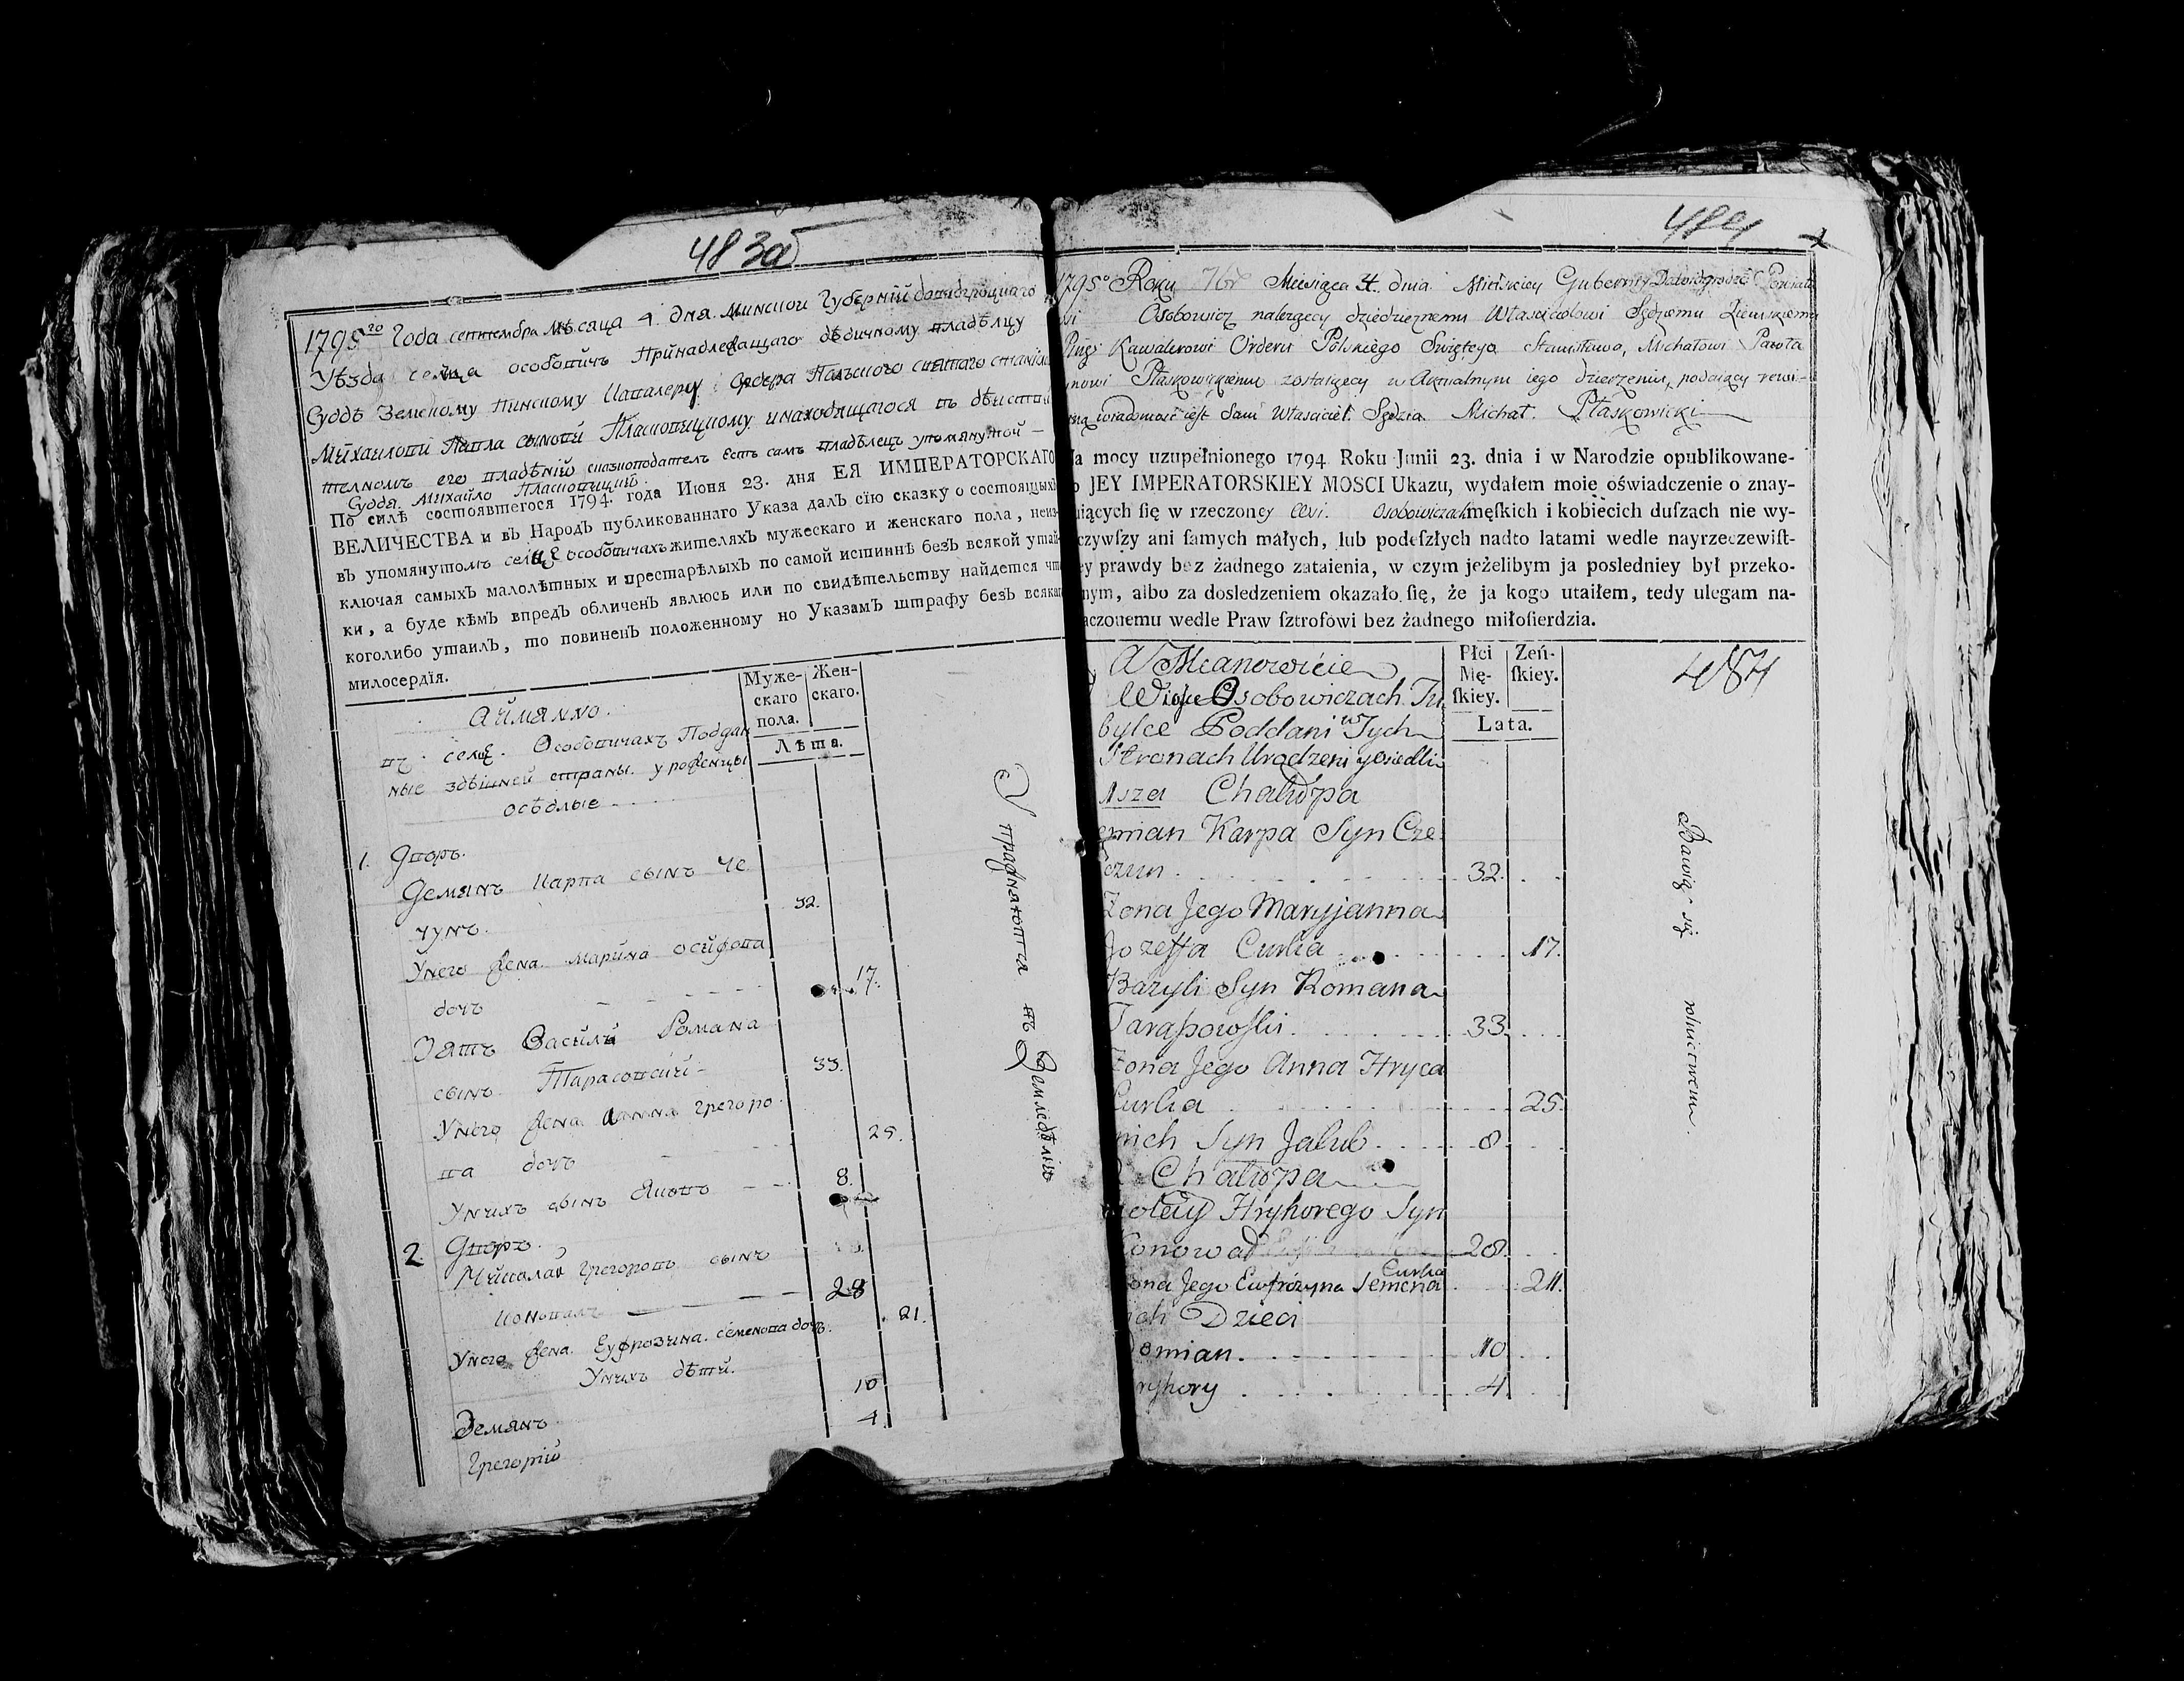 483об
1795го Года сентября мѣсяца 4 дня Минской Губерніи давидгроцкаго
Уѣзда селца особовичъ Принадлежащаго дѣдичному владѣлцу
Суддѣ Земскому Пинскому Кавалеру Ордера Полского святаго станисла
Михаилови Павла сынови Пласковицкому и находящагося въ дѣистви
телномъ его владѣніи сказкоподателъ естъ самъ владѣлецъ упомянутой
Суддя Михайло Пласковицкий.
По силѣ состоявшегося 1794. года Июня 23. дня ЕЯ ИМПЕРАТОРСКАГО
ВЕЛИЧЕСТВА и въ Народъ публикованнаго Указа далъ сїю сказку о состоящыхъ
въ упомянутомъ селцѣ особовичахъ жителяхъ мужескаго и женскаго пола, неиз-
ключая самыхъ малолѣтных и престарѣлыхъ по самой истиннѣ безъ всякой утай-
ки, а буде кѣмъ впредъ обличенъ явлюсь или по свидѣтельству найдется что
коголибо утаилъ, то повиненъ положенному по Указамъ штрафу безъ всякаго
милосердїя.
Муже-
скаго
пола.
Жен-
скаго.
Лѣта.
Аймянно.
въ селцѣ Особовичахъ Поддан
ные здѣшней страны уроженцы
осѣдлые
1. Дворъ.
Демянъ Карпа сынъ Че
чунъ. 32.
Унего жена Марина осифова
дочъ 17.
Зять Василъ Романа
сынъ Тарасовский 33.
Унего жена Анна грегоро
ва дочъ 25.
Унихъ сынъ Яковъ 8.
2. Дворъ.
Миколай Грегоровъ сынъ
Коновалъ 28
Унего жена Еуфрозина семенова дочъ. 21.
Унихъ дѣти.
Демянъ 10
Грегорий 4.
Упражняются въ Земледѣлію
484
1795o Roku 7br Miesiąca 4. dnia Minskiey Gubernij Dawidgrodzo Powiatu
wi Osobowicz należący dziedzicznemu Właścicielowi Sędziemu Ziemskiemu
Kawalerowi Orderu Polskiego Swiętego Stanisława, Michałowi Pawła
ynowi Płaskowickiemu zostaiący w Aktualnym iego dzierżeniu, podaiący rewi-
ną wiadomość iest Sam Właściciel Sędzia Michał Płaskowicki
Na mocy uzupełnionego 1794 Roku Junii 23. dnia i w Narodzie opublikowane-
o JEY IMPERATORSKIEY MOSCI Ukazu, wydałem moie oświadczenie o znay-
uiących ſię w rzeczoney Wsi Osobowiczach męſkich i kobiecich duſzach nie wy-
czywſzy ani ſamych małych, lub podeſzłych nadto latami wedle nayrzeczewiſt-
ey prawdy bez żadnego zataienia, w czym jeżelibym ja posledniey był przeko-
nym, albo za dosledzeniem okazało ſię, że ja kogo utaiłem, tedy ulegam na-
aczonemu wedle Praw ſztrofówi bez żadnego miłoſierdzia.
Płci
Mę-
ſkiey.
Zeń-
ſkiey.
Lata.
484
A Mianowicie
W Wiosce Osobowiczach Tu
bylce Poddani w Tych
Stronach Urodzeni y osiedli
1sza Chałupa
emian Karpa Syn Cze
czun 32.
Zona Jego Maryjanna
Jozeffa Curka 17.
Bazyli Syn Romana
Tarasowski 33.
Zona Jego Anna Hryca
Curka 25.
nich Syn Jakub 8
2 Chałupa
ołay Hryhorego Syn
Konował 28.
Curka
ona Jego Eufrozyna Semena 21.
ich Dzieci
Demian 10
ryhory 4
Bawią się rolnictwem.